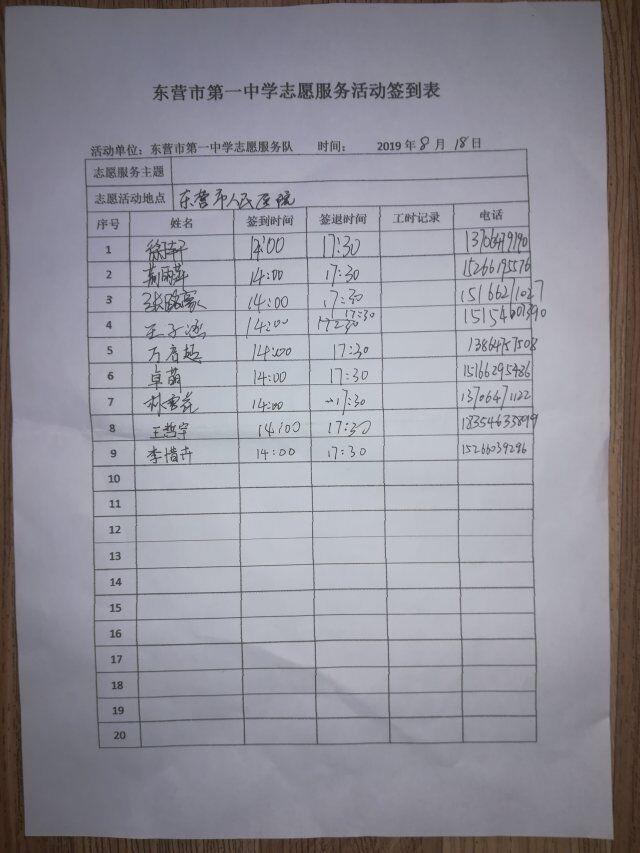 东营市第一中学志愿服务活动签到表
活动单位：东营市第一中学志愿服务队 时间： 2019 年 8 月 18 日
志愿服务主题
志愿活动地点 东营市人民医院
序号 姓名 签到时间 签退时间 工时记录 电话
1 14:00 17:30 13706419190
2 14:00 17:30 15266195576
3 14:00 17:30 15166271027
17:30
4 王子涵 14:00 17:30 15154601390
5 万启超 14:00 17:30 13864757508
6 卓萌 14:00 17:30 15166295486
7 林雪苑 14:00 17:30 13706471122
8 王哲宇 14:00 17:30 18354633899
9 李惜卉 14:00 17:30 15266039296
10
11
12
13
14
15
16
17
18
19
20